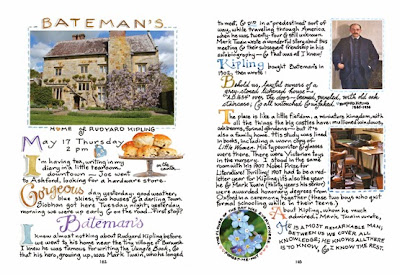 BATEMAN'S
HOME of RUDYARD KIPLING
MAY 17 THURSDAY
2 PM
I'm having tea, writing in my
diary, in little tearoom,
downtown — Joe went
to Ashford, looking for a hardware store.
in the
Gorgeous day yesterday: good weather,
blue skies, two houses & a darling town.
Siobhan got here Tuesday night; yesterday
morning we were up early & on the road. First stop?
Bateman's
I knew almost nothing about Rudyard Kipling before
we went to his home near the tiny village of Burwash.
I knew he was famous for writing The Jungle Book, &
that his hero, growing up, was Mark Twain, who he longed
165
to meet, & DID in a "predestined" sort of
way, while traveling through America
when he was twenty-four & still unknown.
Mark Twain wrote a wonderful story about this
meeting & their subsequent friendship in his
autobiography — & that was all I knew!
Kipling bought Bateman's in
1902, then wrote:
Behold us, lawful owners of a
grey stoned lichened house —
"AD 1634" over the door — beamed, paneled, with old oak
staircase, & all untouched & unfaked.
RUDYARD KIPLING
1865-1936
The place is like a little fiefdom, a miniature kingdom, with
all the things the big castles have: mullioned windows,
oak beams, formal gardens — but it is
also a family home. His study was lined
in books, including a worn copy of
Little Women. His typewriter & glasses
were there. There were Victorian toys
in the nursery. I stood in the same
room with his 1907 Nobel Prize for
Literature! Thrilling! 1907 had to be a red-
letter year for Kipling; it's also the year
he & Mark Twain (thirty years his senior)
were awarded honorary degrees from
Oxford in a ceremony together (these two boys who got
formal schooling while in their teens.)
About Kipling, whom he much
admired, Mark Twain wrote,
HE IS A MOST REMARKABLE MAN.
BETWEEN US WE COVER ALL
KNOWLEDGE; HE KNOWS ALL THERE
IS TO KNOW, & I KNOW THE REST.
166